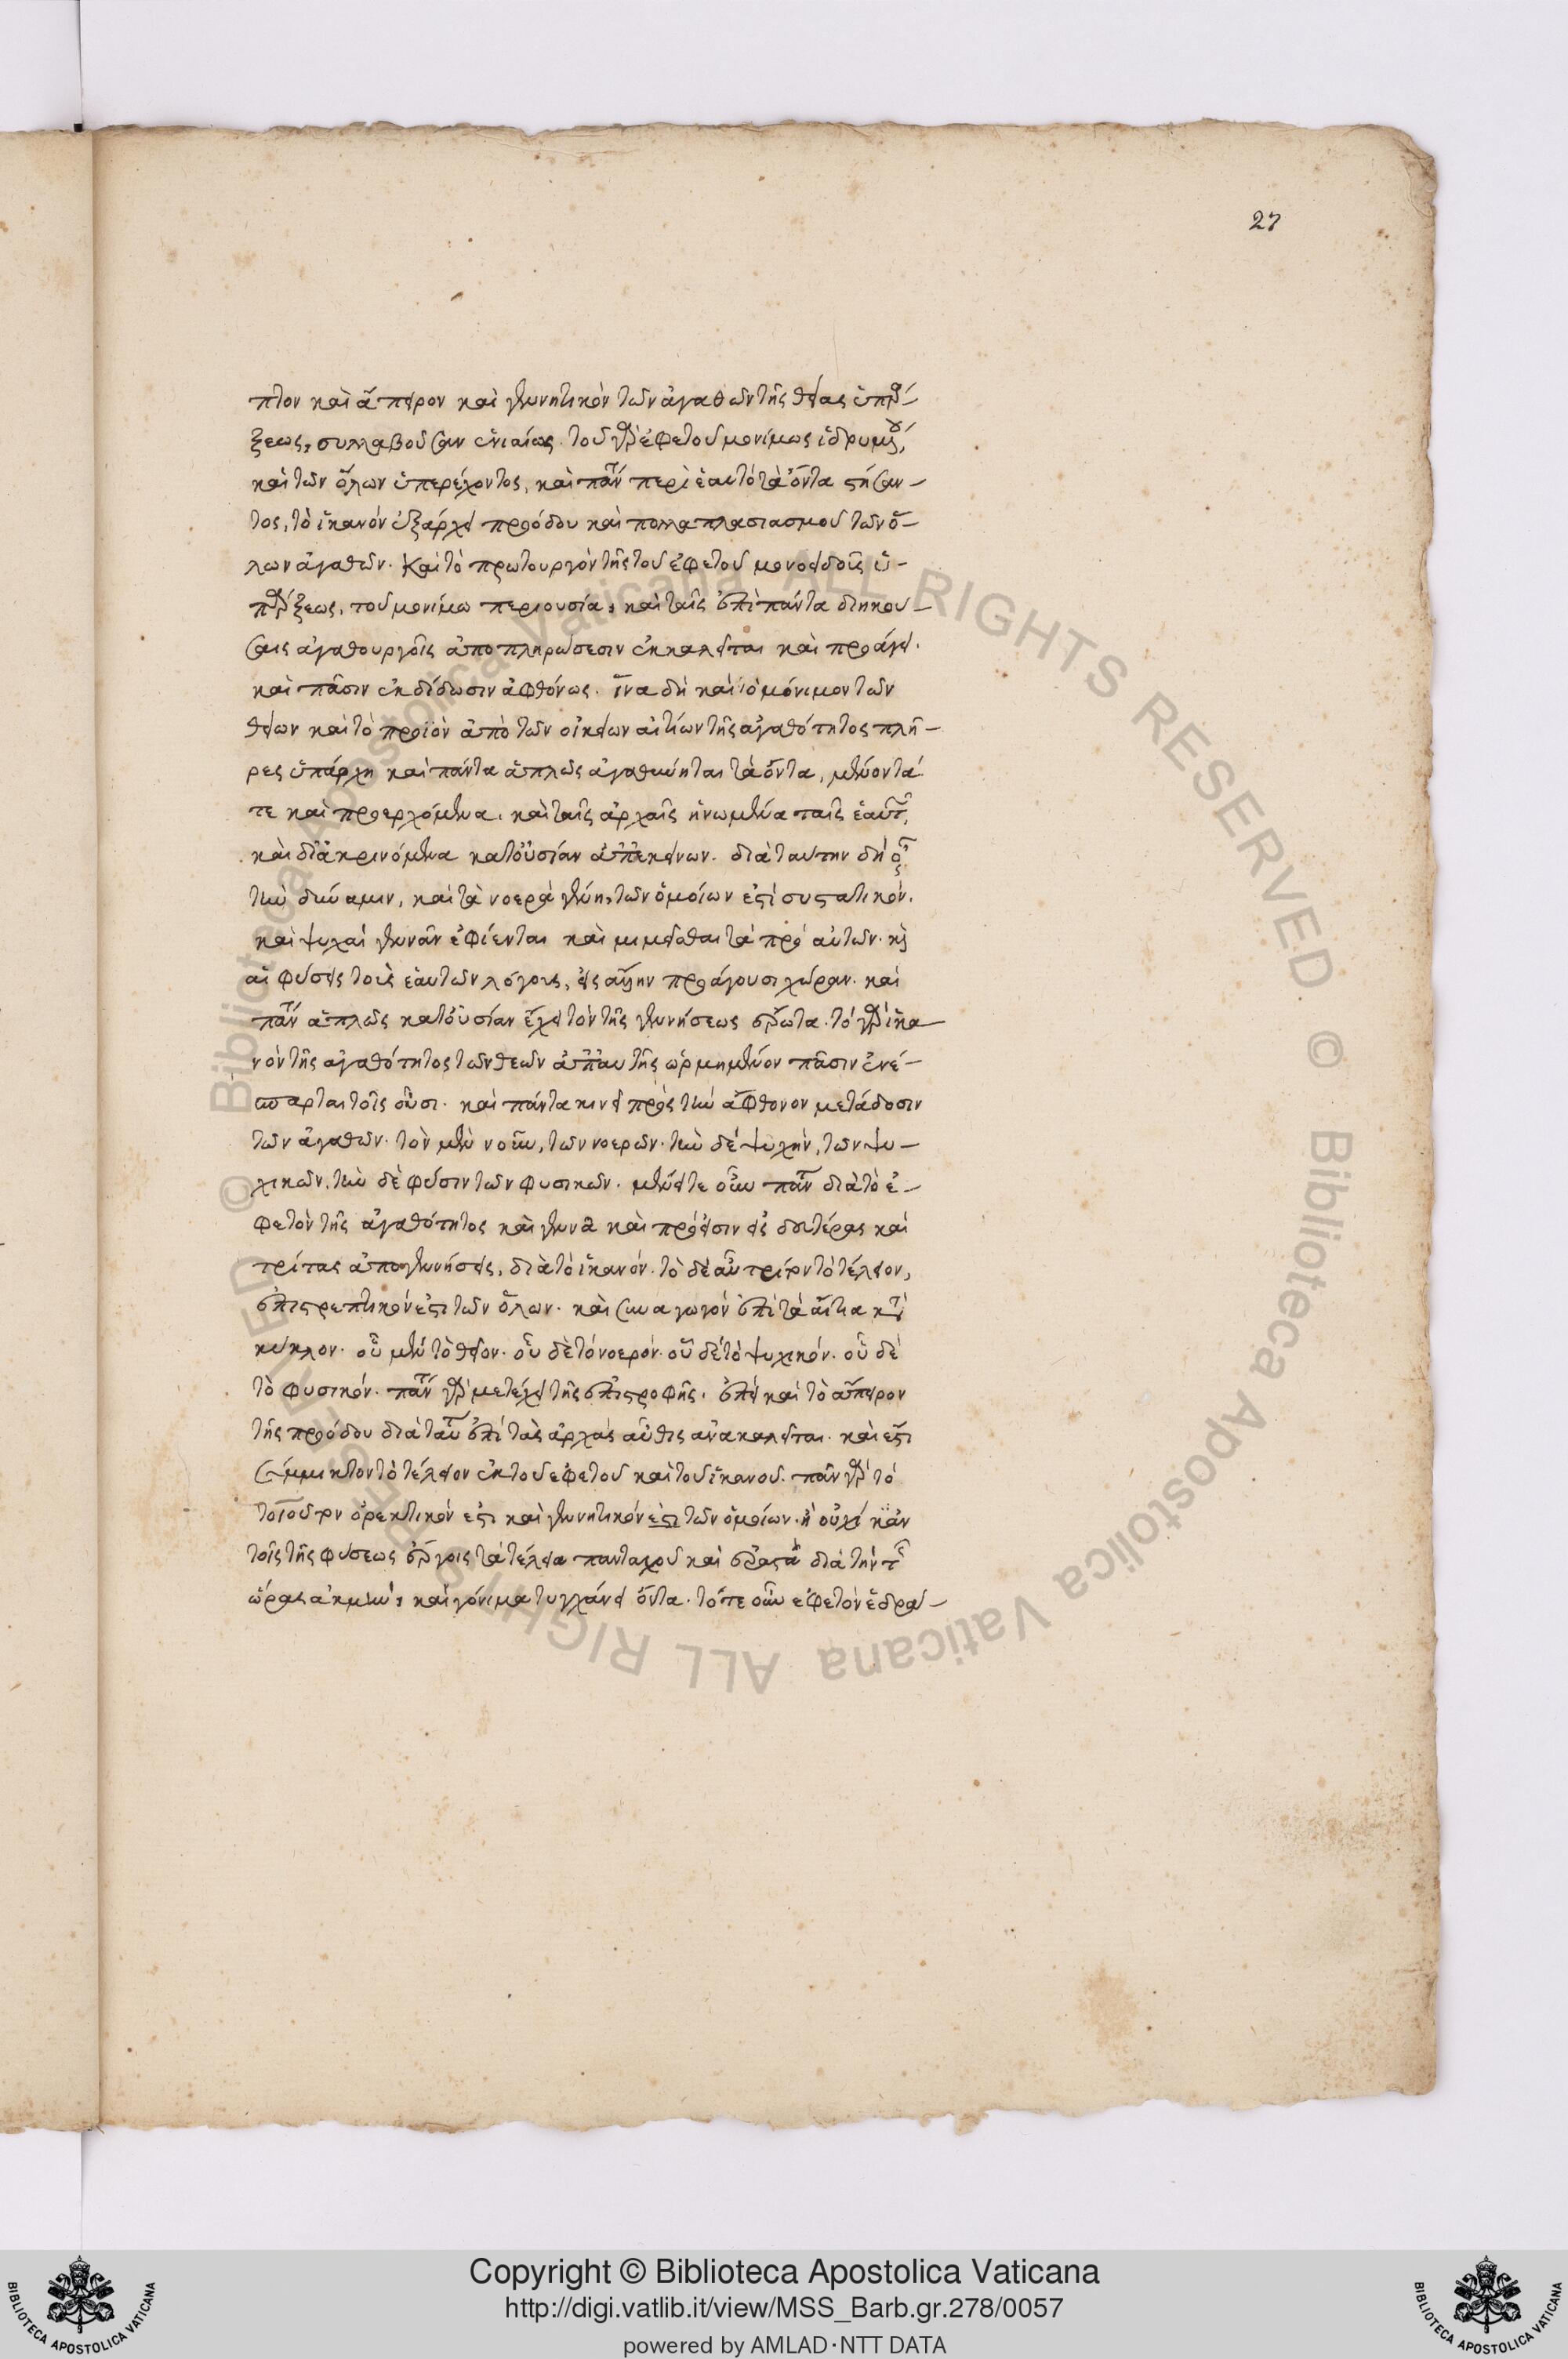 27
πτον καὶ ἄπειρον καὶ γεννητικὸν τῶν ἀγαθῶν τῆς θείας ὑπάρ-
ξεως, συλλαβοῦσαν ἑνιαίως. τοῦ γὰρ ἐφετοῦ μονίμως ἱδρυμένου,
καὶ τῶν ὅλων ὑπερέχοντος, καὶ πάντα περὶ ἑαυτὸ τὰ ὄντα στήσαν-
τος, τὸ ἱκανὸν ἐξάρχει προόδου καὶ πολλαπλασιασμοῦ τῶν ὅ-
λων ἀγαθῶν. καὶ τὸ πρωτουργὸν τῆς τοῦ ἐφετοῦ μονοειδοῦς ὑ-
πάρξεως, τοῦ μονίμω περιουσία, καὶ ταῖς ἐπὶ πάντα διηκού-
σαις ἀγαθουργοῖς ἀποπληρώσεσιν ἐκκαλεῖται καὶ προάγει.
καὶ πᾶσιν ἐκδίδωσιν ἀφθόνως. ἵνα δὴ καὶ τὸ μόνιμον τῶν
θείων καὶ τὸ προϊὸν ἀπὸ τῶν οἰκείων αἰτίων τῆς ἀγαθότητος πλῆ-
ρες ὑπάρχη καὶ πάντα ἁπλῶς ἀγαθύνηται τὰ ὄντα, μένοντά
τε καὶ προερχόμενα. καὶ ταῖς ἀρχαῖς ἡνωμένα ταῖς ἑαυτῶν,
καὶ διακρινόμενα κατ' οὐσίαν ἀπ' ἐκείνων. διὰ ταύτην δὴ οὖν
τὴν δύναμιν, καὶ τὰ νοερὰ γένη, τῶν ὁμοίων ἐστὶ συστατικόν.
καὶ ψυχαὶ γεννᾶν ἐφίενται καὶ μιμεῖσθαι τὰ πρὸ αὐτῶν. καὶ
αἱ φύσεις τοὺς ἑαυτῶν λόγους, εἰς ἄλλην προάγουσι χώραν. καὶ
πάντα ἁπλῶς κατ' οὐσίαν ἔχει τὸν τῆς γεννήσεως ἔρωτα. τὸ γὰρ ἱκα
νὸν τῆς ἀγαθότητος τῶν θεῶν ἀπ' αὐτῆς ὡρμημένον πᾶσιν ἐνέ-
σπαρται τοῖς οὖσι. καὶ πάντα κινεῖ πρὸς τὴν ἄφθονον μετάδοσιν
τῶν ἀγαθῶν. τὸν μὲν νοῦν, τῶν νοερῶν. τὴν δὲ ψυχὴν, τῶν ψυ-
χικῶν, τὴν δὲ φύσιν τῶν φυσικῶν. μένει τε οὖν πάντα διὰ τὸ ἐ-
φετὸν τῆς ἀγαθότητος καὶ γεννᾶ καὶ πρόεισιν εἰς δευτέρας καὶ
τρίτας ἀπογεννήσεις, διὰ τὸ ἱκανόν. τὸ δὲ αὖ τρίτον τὸ τέλειον,
ἐπιστρεπτικόν ἐστι τῶν ὅλων. καὶ συναγωγὸν ἐπὶ τὰ αἴτια κατὰ
κύκλον. οὗ μὲν τὸ θεῖον. οὗ δὲ τὸ νοερόν. οὗ δὲ τὸ ψυχικόν. οὗ δὲ
τὸ φυσικόν. πάντα γὰρ μετέχει τῆς ἐπιστροφῆς. ἐπεὶ καὶ τὸ ἄπειρον
τῆς προόδου διὰ ταύτης ἐπὶ τὰς ἀρχὰς αὖθις ἀνακαλεῖται. καὶ ἔστι
σύμμικτον τὸ τέλειον ἐκ τοῦ ἐφετοῦ καὶ τοῦ ἱκανοῦ. πᾶν γὰρ τὸ
τοιοῦτον ὀρεκτικόν ἐστι καὶ γεννητικόν ἐστι τῶν ὁμοίων. ἢ οὐχὶ κἀν
τοῖς τῆς φύσεως ἔργοις τὰ τέλεια πανταχοῦ καὶ ἐραστὰ διὰ τὴν τῆς
ὥρας ἀκμὴν, καὶ γόνιμα τυγχάνει ὄντα. τό τε οὖν ἐφετὸν ἑδραί-